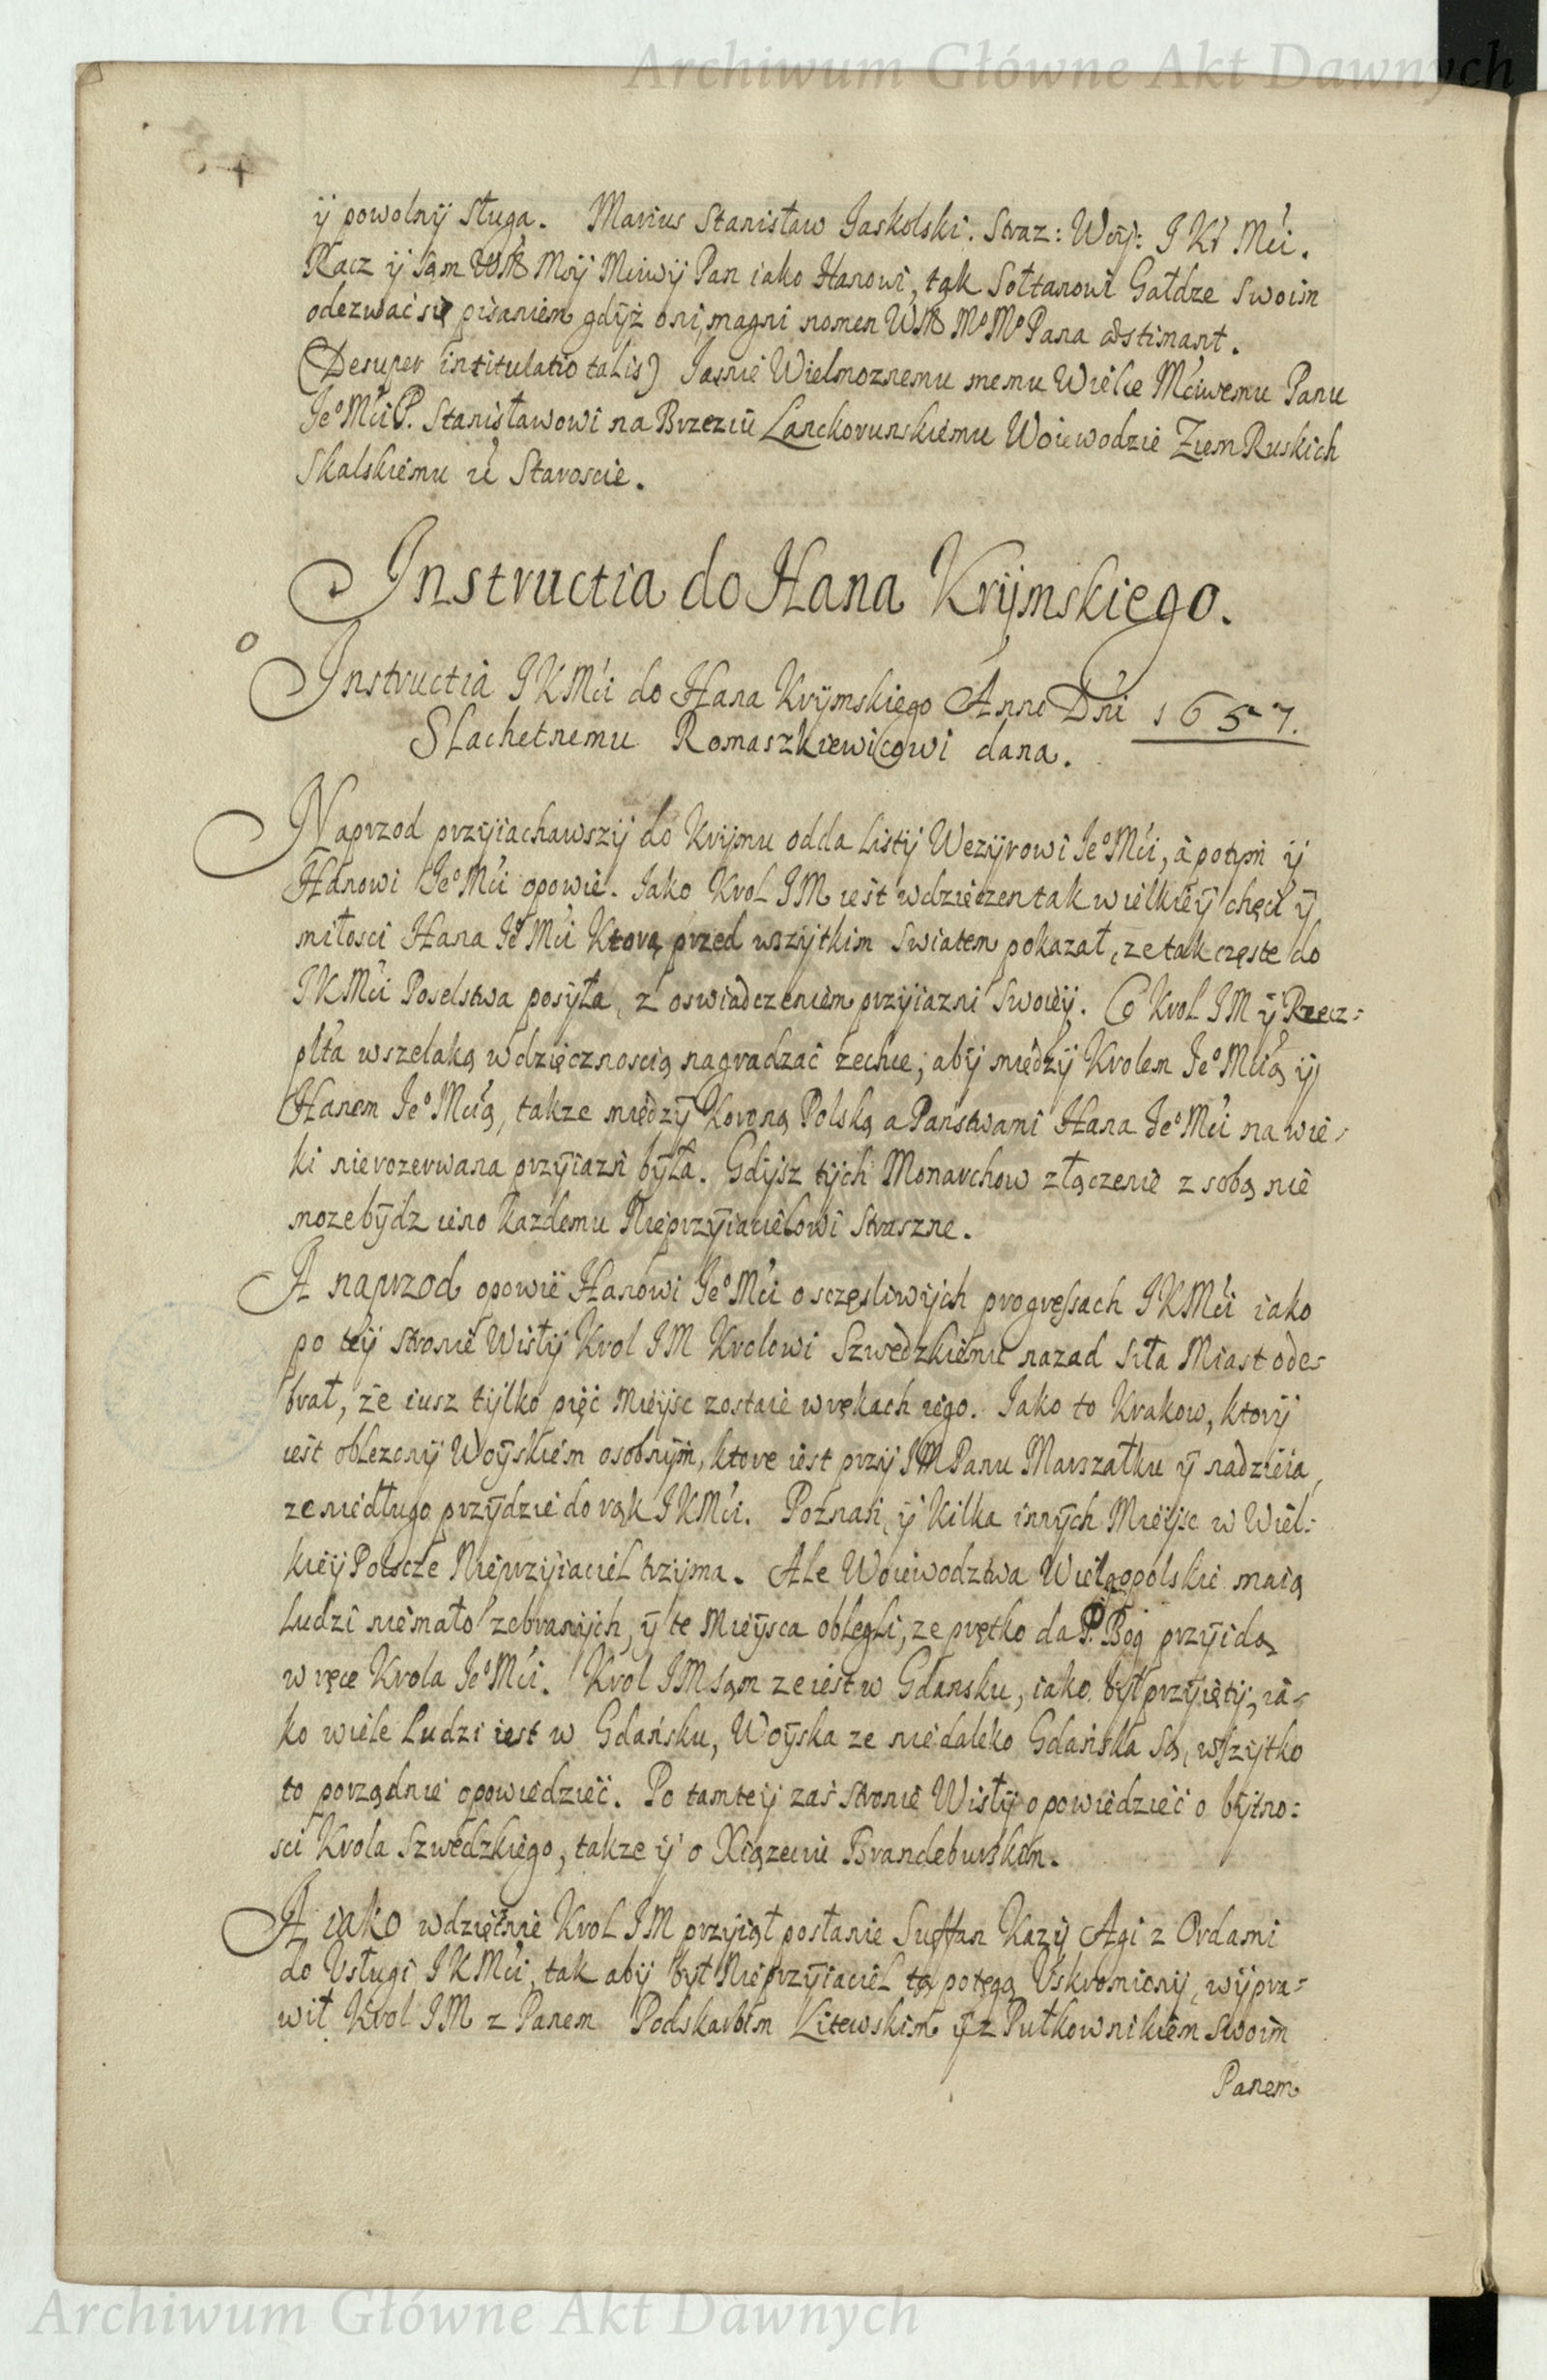 Archiwum Główne Akt Dawnych
ÿ powolnÿ Sługa. Marius Stanisław Jaskolski. Straz: Woÿ: J Kr Mći.
Racz ÿ sam WM Mÿ Mciwÿ Pan iako Hanowi, tak Sołtanowi Gałdze Swoim
odezwać się pisaniem gdÿż oni, magni nomen WM Mº Mº Pana æstimant.
(Desuper intitulatio talis) Jaśnie Wielmoznemu memu Wielce Mciwemu Panu
Jeº Mći P. Stanisławowi na Brzeziu Lanckorunskiemu Woiewodzie Ziem Ruskich
Skalskiemu ić Staroscie.
Instructia do Hana Krÿmskiego.
Instructia JKMći do Hana Krÿmskiego Anno Dni 1657.
Slachetnemu Romaszkiewicowi dana.
Naprzod przÿiachawszÿ do Krÿmu odda Listÿ Wezÿrowi Jeº Mći, à potÿm ÿ
Hanowi Jeº Mći opowie. Jako Krol JM iest wdzięczen tak wielkieÿ chęci ÿ
miłosci Hana Jeº Mći Ktorą przed wszÿtkim swiatem pokazał, ze tak częste do
JKMći Poselstwa posÿła, z oswiadczeniem przÿiazni Swoieÿ. Co Krol JM ÿ Rzecz-
płta wszelaką wdzięcznoscią nagradzać zechce, abÿ międzÿ Krolem Jeº Mcią ÿ
Hanem Jeº Mcią, takze międzÿ Koroną Polską a Państwami Hana Jeº Mći na wie-
ki nierozerwana przÿiazń bÿła. Gdÿsz tÿch Monarchow złączenie z sobą nie
moze bÿdz ieno kazdemu Nieprzÿiacielowi straszne.
A naprzod opowie Hanowi Jeº Mći o sczęsliwÿch progressach JKMći iako
po teÿ stronie Wisłÿ Krol JM Krolowi Szwedzkiemu nazad siła Miast ode-
brał, że iusz tÿlko pięć mieÿsc zostaie w rękach iego. Jako to Krakow, ktorÿ
iest oblezonÿ Woÿskiem osobnÿm, ktore iest przÿ JM Panu Marszałku ÿ nadzieia,
ze niedługo przÿdzie do rąk JKMći. Poznań, ÿ kilka innÿch Mieÿsc w Wiel-
kieÿ Polscze Nieprzÿiaciel trzÿma. Ale Woiewodztwa Wielgopolskie maią
Ludzi niemało zebranÿch, ÿ te Mieÿsca oblegli, ze prętko da P. Bog przÿidą
w ręce Krola Jeº Mći. Krol JM sam ze iest w Gdansku, iako bÿł przÿiętÿ, ia-
ko wiele Ludzi iest w Gdańsku, Woÿska ze niedaleko Gdańska są, wszÿtko
to porządnie opowiedzieć. Po tamteÿ zaś stronie Wisłÿ opowiedzieć o bÿtno-
sci Krola Szwedzkiego, takze ÿ o Xiązeciu Brandeburskim.
A iako wdzięcznie Krol JM przÿiął posłanie Suffan Kazÿ Agi z Ordami
do Vsługi JKMći, tak abÿ bÿł Nieprzÿiaciel tą potęgą Vskromionÿ, wÿpra-
wił Krol JM z Panem Podskarbim Litewskim ÿ z Pułkownikiem swoim
Panem
Archiwum Główne Akt Dawnych